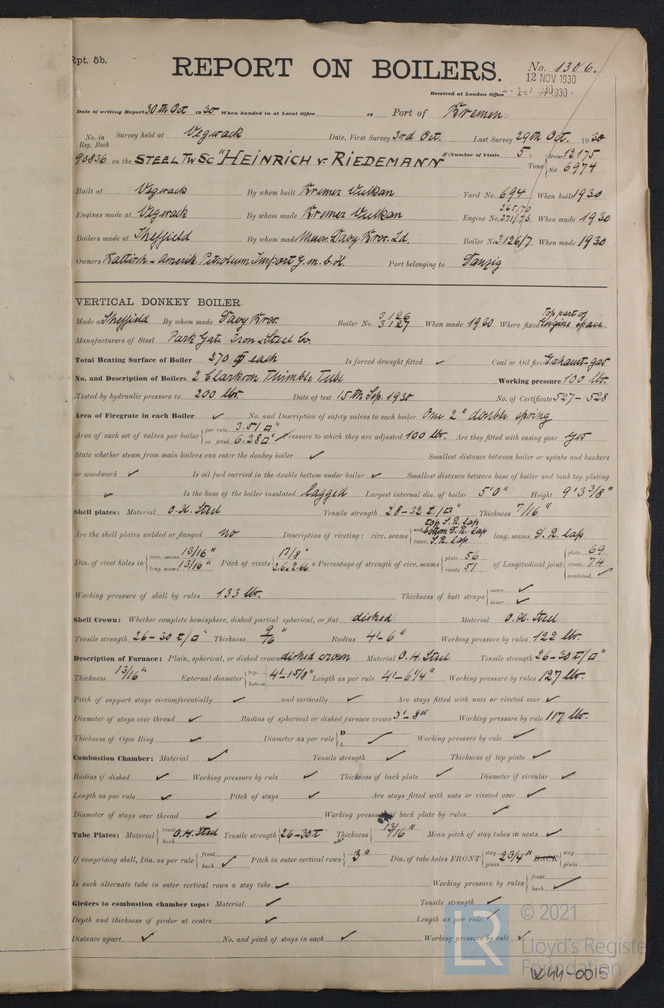 Rpt. 5b.
REPORT ON BOILERS.
No. 1306.
12 NOV 1930
Received at London Office
Date of writing Report 30th Oct 1930 When handed in at Local Office 19 Port of Bremen
No. in Reg. Book Survey held at Vegesack Date, First Survey 3rd Oct. Last Survey 29th Oct. 1930
90836 on the STEEL TW SC "HEINRICH v. RIEDEMANN" (Number of Visits 5) Tons Gross 12175 Net 6974
Built at Vegesack By whom built Bremer Vulkan Yard No. 694 When built 1930
Engines made at Vegesack By whom made Bremer Vulkan Engine No. When made 1930
Boilers made at Sheffield By whom made Messrs. Davy Bros. Ld. Boiler No. 3126/7 When made 1930
Owners Baltisch-Amerik. Petroleum Import G.m.b.H. Port belonging to Danzig
VERTICAL DONKEY BOILER.
Made at Sheffield By whom made Davy Bros. Boiler No. 3126 3127 When made 1930 Where fixed Top part of Engine space.
Manufacturers of Steel Park Gate Iron & Steel Co.
Total Heating Surface of Boiler 270 each Is forced draught fitted ✓ Coal or Oil fired Exhaust-gas
No. and Description of Boilers 2 Clarkson Thimble Tube Working pressure 100 lbs.
Tested by hydraulic pressure to 200 lbs. Date of test 15th Sep. 1930 No. of Certificate 527-528
Area of Firegrate in each Boiler ✓ No. and Description of safety valves to each boiler One 2" double spring
Area of each set of valves per boiler { per rule 3.51 □" as fitted 6.28 □" Pressure to which they are adjusted 100 lbs. Are they fitted with easing gear Yes
State whether steam from main boilers can enter the donkey boiler ✓ Smallest distance between boiler or uptake and bunkers
or woodwork ✓ Is oil fuel carried in the double bottom under boiler ✓ Smallest distance between base of boiler and tank top plating
✓ Is the base of the boiler insulated lagged Largest internal dia. of boiler 5'0" Height 9'3 3/8"
Shell plates: Material O.H. Steel Tensile strength 28-32 t/□" Thickness 7/16"
Are the shell plates welded or flanged No Description of riveting: circ. seams { end top S.R. lap bottom S.R. lap inter. S.R. lap long. seams D.R. laps
Dia. of rivet holes in { circ. seams 13/16" long. seams 13/16" Pitch of rivets { 17/8" 2.6-2.66" Percentage of strength of circ. seams { plate 56 rivets 51 of Longitudinal joint { plate 69 rivets 74 combined ✓
Working pressure of shell by rules 133 lbs. Thickness of butt straps { outer ✓ inner ✓
Shell Crown: Whether complete hemisphere, dished partial spherical, or flat dished Material O.H. Steel
Tensile strength 26-30 t/□" Thickness 9/16" Radius 4'-6" Working pressure by rules 122 lbs.
Description of Furnace: Plain, spherical, or dished crown dished crown Material O.H. Steel Tensile strength 26-30 t/□"
Thickness 13/16" External diameter { top bottom 4'-1 5/8" Length as per rule 4'-6 1/4" Working pressure by rules 127 lbs.
Pitch of support stays circumferentially ✓ and vertically ✓ Are stays fitted with nuts or riveted over ✓
Diameter of stays over thread ✓ Radius of spherical or dished furnace crown 3'-8" Working pressure by rule 117 lbs.
Thickness of Ogee Ring ✓ Diameter as per rule { D d ✓ Working pressure by rule ✓
Combustion Chamber: Material ✓ Tensile strength ✓ Thickness of top plate ✓
Radius if dished ✓ Working pressure by rule ✓ Thickness of back plate ✓ Diameter if circular ✓
Length as per rule ✓ Pitch of stays ✓ Are stays fitted with nuts or riveted over ✓
Diameter of stays over thread ✓ Working pressure of back plate by rules ✓
Tube Plates: Material { front back O.H. Steel Tensile strength { 26-30 t Thickness { 13/16" Mean pitch of stay tubes in nests ✓
If comprising shell, Dia. as per rule { front back ✓ Pitch in outer vertical rows { 3" Dia. of tube holes FRONT { stay plain 2 3/4" BACK { stay plain
Is each alternate tube in outer vertical rows a stay tube ✓ Working pressure by rules { front ✓ back ✓
Girders to combustion chamber tops: Material ✓ Tensile strength ✓
Depth and thickness of girder at centre ✓ Length as per rule ✓
Distance apart ✓ No. and pitch of stays in each ✓ Working pressure by rule ✓
© 2021
LR
Lloyd's Register
Foundation
W44-0015